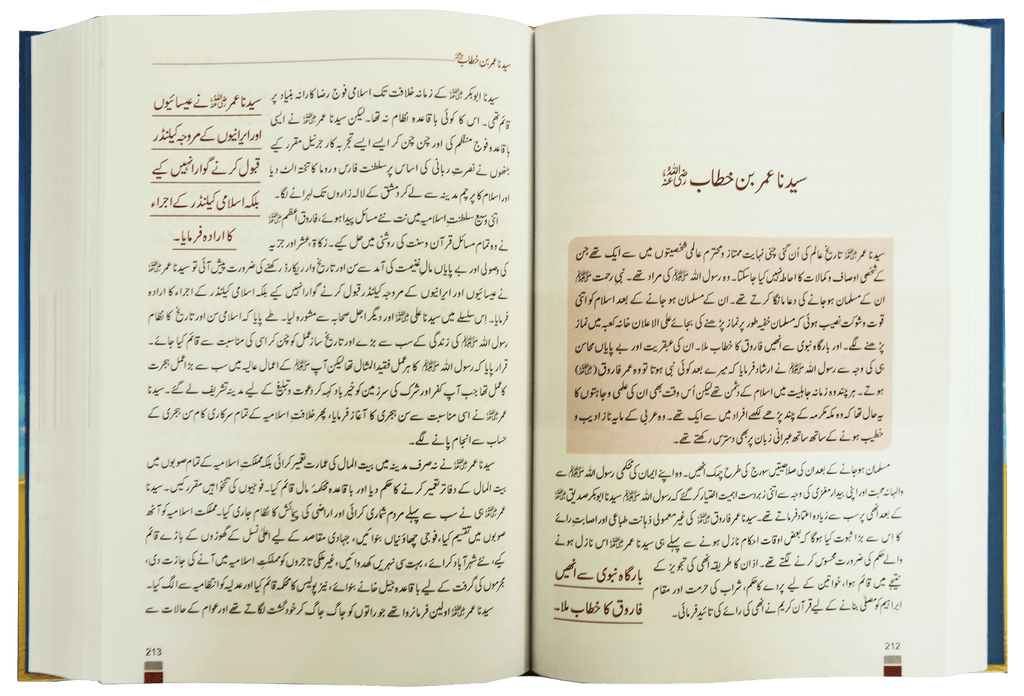 سیدنا عمر بن خطاب رضی اللہ عنہ
سیدنا عمر ﷜ تاریخ عالم کی اُن گنی چنی نہایت ممتاز و محترم عالمی شخصیتوں میں سے ایک تھے جن
کے شخصی اوصاف و کمالات کا احاطہ نہیں کیا جاسکتا۔ وہ رسول اللہ ﷺ کی مراد تھے۔ نبی رحمت ﷺ
ان کے مسلمان ہوجانے کی دعا مانگا کرتے تھے۔ ان کے مسلمان ہو جانے کے بعد اسلام کو اتنی
قوت و شوکت نصیب ہوئی کہ مسلمان خفیہ طور پر نماز پڑھنے کی بجائے علی الاعلان خانہ کعبہ میں نماز
پڑھنے لگے۔ اور بارگاہ نبوی سے انھیں فاروق کا خطاب ملا۔ ان کی عبقریت اور بے پایاں محاسن
ہی کی وجہ سے رسول اللہ ﷺ نے ارشاد فرمایا کہ میرے بعد کوئی نبی ہوتا تو وہ عمر فاروق (﷜)
ہوتے۔ ہر چند وہ زمانہ جاہلیت میں اسلام کے دشمن تھے لیکن اُس وقت بھی ان کی علمی وجاہتوں کا
یہ حال تھا کہ وہ مکہ مکرمہ کے چند پڑھے لکھے افراد میں سے ایک تھے۔ وہ عربی کے مایہ ناز ادیب و
خطیب ہونے کے ساتھ ساتھ عبرانی زبان پر بھی دسترس رکھتے تھے۔
مسلمان ہوجانے کے بعد ان کی صلاحیتیں سورج کی طرح چمک اٹھیں۔ وہ اپنے ایمان کی محکمی رسول اللہ ﷺ سے
والہانہ محبت اور اپنی بیدار مغزی کی وجہ سے اتنی زبردست اہمیت اختیار کر گئے کہ رسول اللہ ﷺ سیدنا ابوبکر صدیق ﷜
کے بعد انھی پر سب سے زیادہ اعتماد فرماتے تھے۔ سیدنا عمر فاروق ﷜ کی غیر معمولی ذہانت طباعی اور اصابت رائے
کا اس سے بڑا ثبوت کیا ہوگا کہ بعض اوقات احکام نازل ہونے سے پہلے ہی سیدنا عمر ﷜ اس نازل ہونے
والے حکم کی ضرورت محسوس کرنے لگتے تھے۔ اذان کا طریقہ انھی کی تجویز کے
نتیجے میں قائم ہوا، خواتین کے لیے پردے کا حکم، شراب کی حرمت اور مقام
ابراہیم کو مصلیٰ بنانے کے لیے قرآن کریم نے انھی کی رائے کی تائید فرمائی۔
بارگاہ نبوی سے انھیں
فاروق کا خطاب ملا۔
212
سیدنا عمر بن خطاب ﷜
سیدنا ابوبکر ﷜ کے زمانہ خلافت تک اسلامی فوج رضا کارانہ بنیاد پر
قائم تھی۔ اس کا کوئی باقاعدہ نظام نہ تھا۔ لیکن سیدنا عمر ﷜ نے ایسی
باقاعدہ فوج منظم کی اور چن چن کر ایسے ایسے تجربہ کار جرنیل مقرر کیے
جنھوں نے نصرتِ ربانی کی اساس پر سلطنت فارس و روما کا تختہ الٹ دیا
اور اسلام کا پرچم مدینہ سے لے کر دمشق کے لالہ زاروں تک لہرانے لگا۔
اتنی وسیع سلطنتِ اسلامیہ میں نت نئے مسائل پیدا ہوئے، فاروق اعظم ﷜
نے وہ تمام مسائل قرآن و سنت کی روشنی میں حل کیے۔ زکاۃ، عشر اور جزیہ
سیدنا عمر ﷜ نے عیسائیوں
اور ایرانیوں کے مروجہ کیلنڈر
قبول کرنے گوارا نہیں کیے
بلکہ اسلامی کیلنڈر کے اجراء
کا ارادہ فرمایا۔
کی وصولی اور بے پایاں مالِ غنیمت کی آمد سے سن اور تاریخ وار ریکارڈ رکھنے کی ضرورت پیش آئی تو سیدنا عمر ﷜
نے عیسائیوں اور ایرانیوں کے مروجہ کیلنڈر قبول کرنے گوارا نہیں کیے بلکہ اسلامی کیلنڈر کے اجراء کا ارادہ
فرمایا۔ اِس سلسلے میں سیدنا علی ﷜ اور دیگر اجل صحابہ سے مشورہ لیا۔ طے پایا کہ اسلامی سن اور تاریخ کا نظام
رسول اللہ ﷺ کی زندگی کے سب سے بڑے اور تاریخ ساز عمل کو چن کر اسی کی مناسبت سے قائم کیا جائے۔
قرار پایا کہ رسول اللہ ﷺ کا ہر عمل فقید المثال تھا لیکن آپ ﷺ کے اعمال عالیہ میں سب سے بڑا عمل ہجرت
کا عمل تھا جب آپ کفر اور شرک کی سرزمین کو خیر باد کہہ کر دعوت و تبلیغ کے لیے مدینہ تشریف لے گئے۔ سیدنا
عمر ﷜ نے اسی مناسبت سے سن ہجری کا آغاز فرمایا، پھر خلافت اسلامیہ کے تمام سرکاری کام سن ہجری کے
حساب سے انجام پانے لگے۔
سیدنا عمر ﷜ نے نہ صرف مدینہ میں بیت المال کی عمارت تعمیر کرائی بلکہ مملکتِ اسلامیہ کے تمام صوبوں میں
بیت المال کے دفاتر تعمیر کرنے کا حکم دیا اور باقاعدہ محکمہ مال قائم کیا۔ فوجیوں کی تنخواہیں مقرر کیں۔ سیدنا
عمر ﷜ ہی نے سب سے پہلے مردم شماری کرائی اور اراضی کی پیمائش کا نظام جاری کیا۔ مملکت اسلامیہ کو آٹھ
صوبوں میں تقسیم کیا، فوجی چھاؤنیاں بنوائیں، جہادی مقاصد کے لیے اعلیٰ نسل کے گھوڑوں کے باڑے قائم
کیے، نئے شہر آباد کرائے، بہت سی نہریں کھدوائیں، غیر ملکی تاجروں کو مملکتِ اسلامیہ میں آنے کی اجازت دی،
مجرموں کی گرفت کے لیے باقاعدہ جیل خانے بنوائے، نیز پولیس کا محکمہ قائم کیا اور عدلیہ کو انتظامیہ سے الگ کیا۔
سیدنا عمر ﷜ اولین فرمانروا تھے جو راتوں کو جاگ جاگ کر خود گشت لگاتے تھے اور عوام کے حالات سے
213